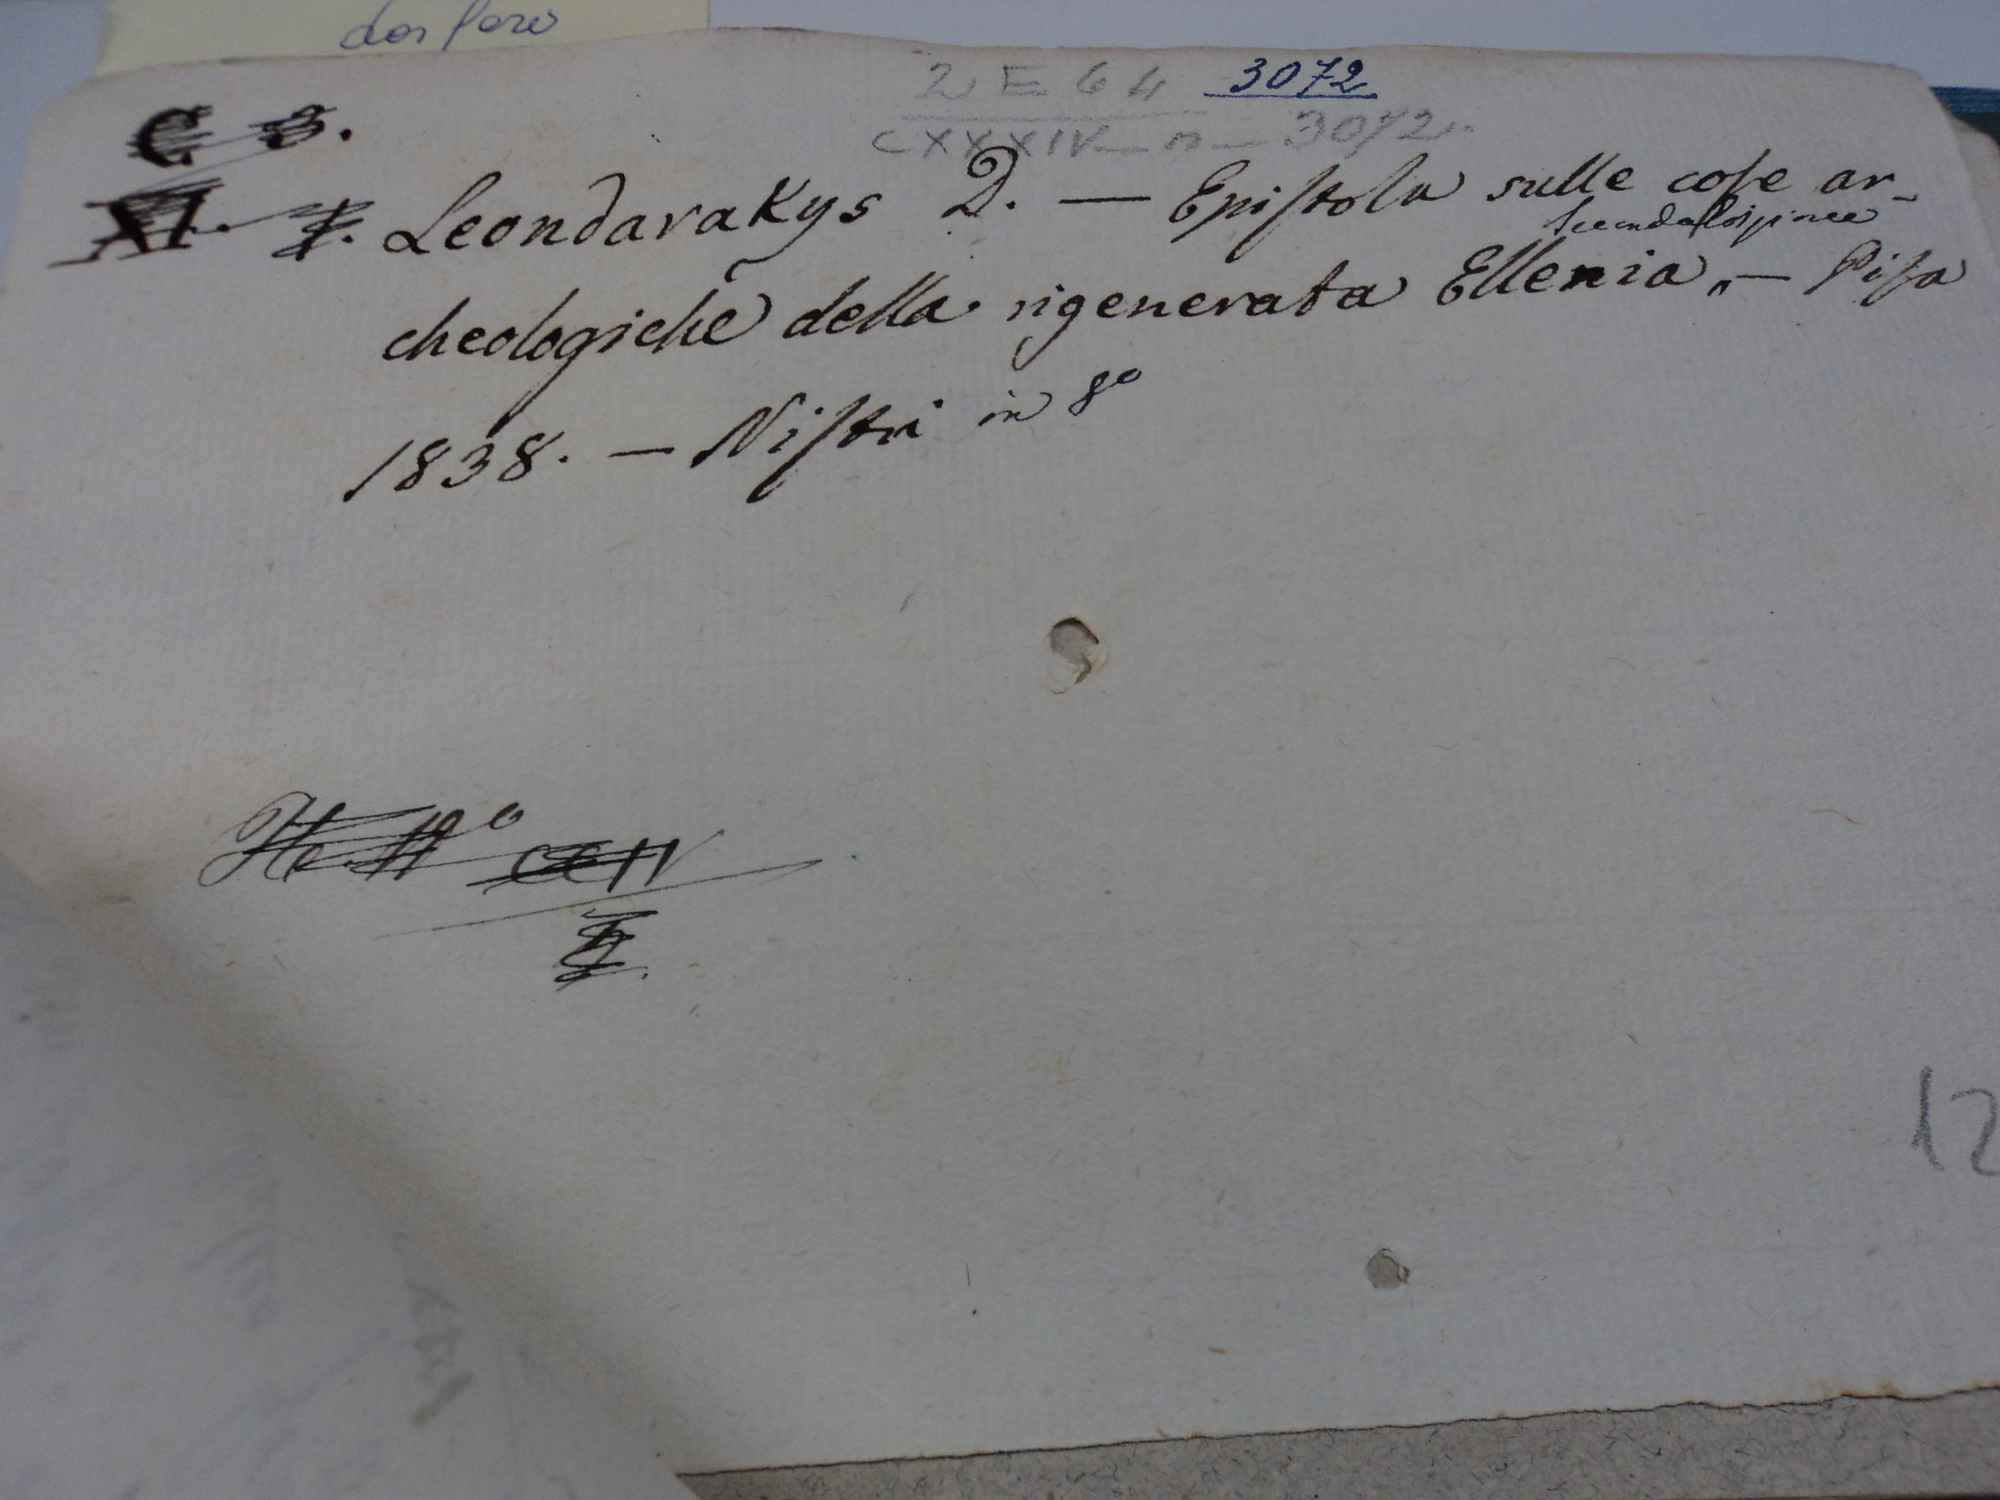 2 E 64 3072
CXXXIV - n - 3072
C 3.
XI. Leondarakys D. — Epistola sulle cose ar-
cheologiche della rigenerata Ellenia „ — Pisa
1838. — Nistri in 8º
12